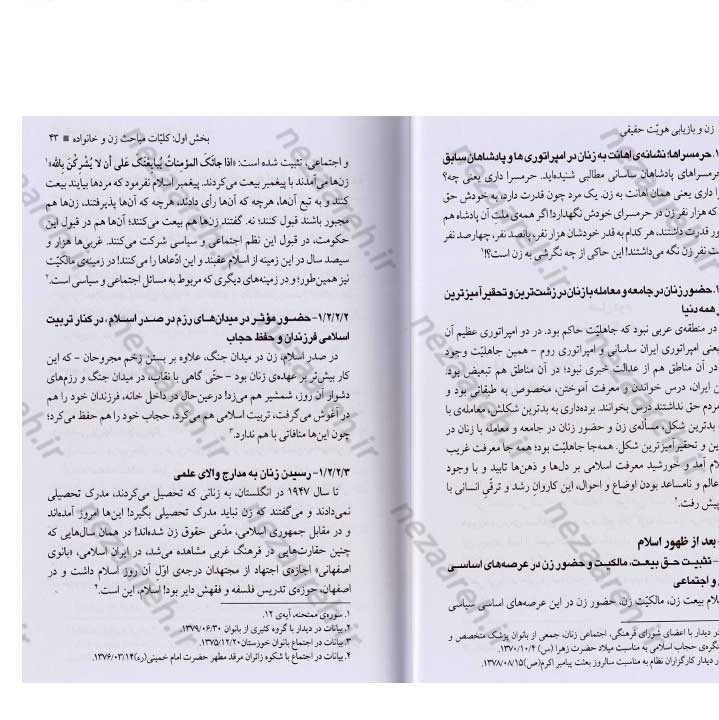 زن و بازیابی هویّت حقیقی
۱. حرمسراها: نشانه‌ی اهانت به زنان در امپراتوری‌ها و پادشاهان سابق
حرمسراهای پادشاهان ساسانی مطالبی شنیده‌اید. حرمسرا داری یعنی چه؟
داری یعنی همان اهانت به زن. یک مرد چون قدرت دارد، به خودش حق
که هزار نفر زن در حرمسرای خودش نگهدارد! اگر همه‌ی ملّت آن پادشاه هم
قدرت داشتند، هر کدام به قدر خودشان هزار نفر، پانصد نفر، چهارصد نفر
نفر زن نگه می‌داشتند! این حاکی از چه نگرشی به زن است؟!
۱. حضور زنان در جامعه و معامله با زنان در زشت‌ترین و تحقیرآمیزترین
همه دنیا
در منطقه‌ی عربی نبود که جاهلیّت حاکم بود. در دو امپراتوری عظیم آن
یعنی امپراتوری ایران ساسانی و امپراتوری روم - همین جاهلیّت وجود
در آن مناطق هم از عدالت خبری نبود؛ در آن مناطق هم تبعیض بود.
ایران، درس خواندن و معرفت آموختن، مخصوص به طبقاتی بود و
مردم حق نداشتند درس بخوانند. برده‌داری به بدترین شکلش، معامله‌ی با
بدترین شکل، مسأله‌ی زن و حضور زنان در جامعه و معامله با زنان در
و تحقیرآمیزترین شکل. همه‌جا جاهلیّت بود؛ همه جا معرفت غریب
آمد و خورشید معرفت اسلامی بر دل‌ها و ذهن‌ها تابید و با وجود
عالم و نامساعد بودن اوضاع و احوال، این کاروانِ رشد و ترقّیِ انسانی با
پیش رفت.۲
بعد از ظهور اسلام
- تثبیت حق بیعت، مالکیت و حضور زن در عرصه‌های اساسی
و اجتماعی
اسلام بیعت زن، مالکیّت زن، حضور زن در این عرصه‌های اساسی سیاسی
در دیدار با اعضای شورای فرهنگی، اجتماعی زنان، جمعی از بانوان پزشک متخصص و
حجاب اسلامی به مناسبت میلاد حضرت زهرا (س) ۱۳۷۰/۱۰/۴.
دیدار کارگزاران نظام به مناسبت سالروز بعثت پیامبر اکرم(ص) ۱۳۷۸/۰۸/۱۵.
بخش اول: کلیّات مباحث زن و خانواده ■ ۴۳
و اجتماعی، تثبیت شده است: «اذا جائکَ المؤمناتُ یُبایِعنَکَ عَلی أن لا یُشْرِکْنَ بِالله»۱
زن‌ها می‌آمدند با پیغمبر بیعت می‌کردند. پیغمبر اسلام نفرمود که مردها بیایند بیعت
کنند و به تبع آن‌ها، هرچه که آن‌ها رأی دادند، هرچه که آن‌ها پذیرفتند، زن‌ها هم
مجبور باشند قبول کنند؛ نه. گفتند زن‌ها هم بیعت می‌کنند؛ آن‌ها هم در قبول این
حکومت، در قبول این نظم اجتماعی و سیاسی شرکت می‌کنند. غربی‌ها هزار و
سیصد سال در این زمینه از اسلام عقبند و این ادّعاها را می‌کنند! در زمینه‌ی مالکیّت
نیز همین‌طور؛ و در زمینه‌های دیگری که مربوط به مسائل اجتماعی و سیاسی است.۲
۱/۲/۲/۲- حضور مؤثر در میدان‌های رزم در صدر اسلام، در کنار تربیت
اسلامی فرزندان و حفظ حجاب
در صدر اسلام، زن در میدان جنگ، علاوه بر بستن زخم مجروحان - که این
کار بیش‌تر بر عهده‌ی زنان بود - حتّی گاهی با نقاب، در میدان جنگ و رزم‌های
دشوار آن روز، شمشیر هم می‌زد! درعین‌حال در داخل خانه، فرزندان خود را هم
در آغوش می‌گرفت، تربیت اسلامی هم می‌کرد، حجاب خود را هم حفظ می‌کرد؛
چون این‌ها منافاتی با هم ندارد.۳
۱/۲/۲/۳- رسیدن زنان به مدارج والای علمی
تا سال ۱۹۴۷ در انگلستان، به زنانی که تحصیل می‌کردند، مدرک تحصیلی
نمی‌دادند و می‌گفتند که زن نباید مدرک تحصیلی بگیرد! این‌ها امروز آمده‌اند
و در مقابل جمهوری اسلامی، مدّعی حقوق زن شده‌اند! در همان سال‌هایی که
چنین حقارت‌هایی در فرهنگ غربی مشاهده می‌شد، در ایران اسلامی، «بانوی
اصفهانی» اجازه‌ی اجتهاد از مجتهدان درجه‌ی اوّل آن روز اسلام داشت و در
اصفهان، حوزه‌ی تدریس فلسفه و فقهش دایر بود! اسلام، این است.۴
۱. سوره‌ی ممتحنه، آیه‌ی ۱۲.
۲. بیانات در دیدار با گروه کثیری از بانوان ۱۳۷۹/۰۶/۳۰.
۳. بیانات در اجتماع بانوان خوزستان ۱۳۷۵/۱۲/۲۰.
۴. بیانات در اجتماع با شکوه زائران مرقد مطهر حضرت امام خمینی(ره) ۱۳۷۶/۰۳/۱۴.
nezareh.ir